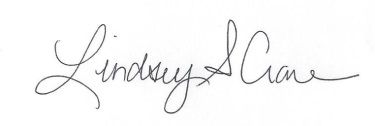 Lindsey S Crane